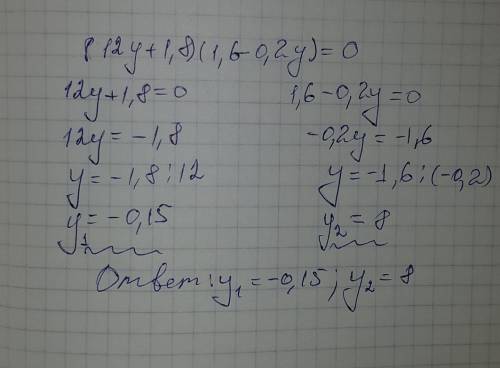 (12y+1,8)(1,6-0,2y)=0
12y+1,8=0
12y=-1,8
y=-1,8:12
y₁=-0,15
1,6-0,2y=0
-0,2y=-1,6
y=-1,6:(-0,2)
y₂=8
Ответ: y₁=-0,15; y₂=8